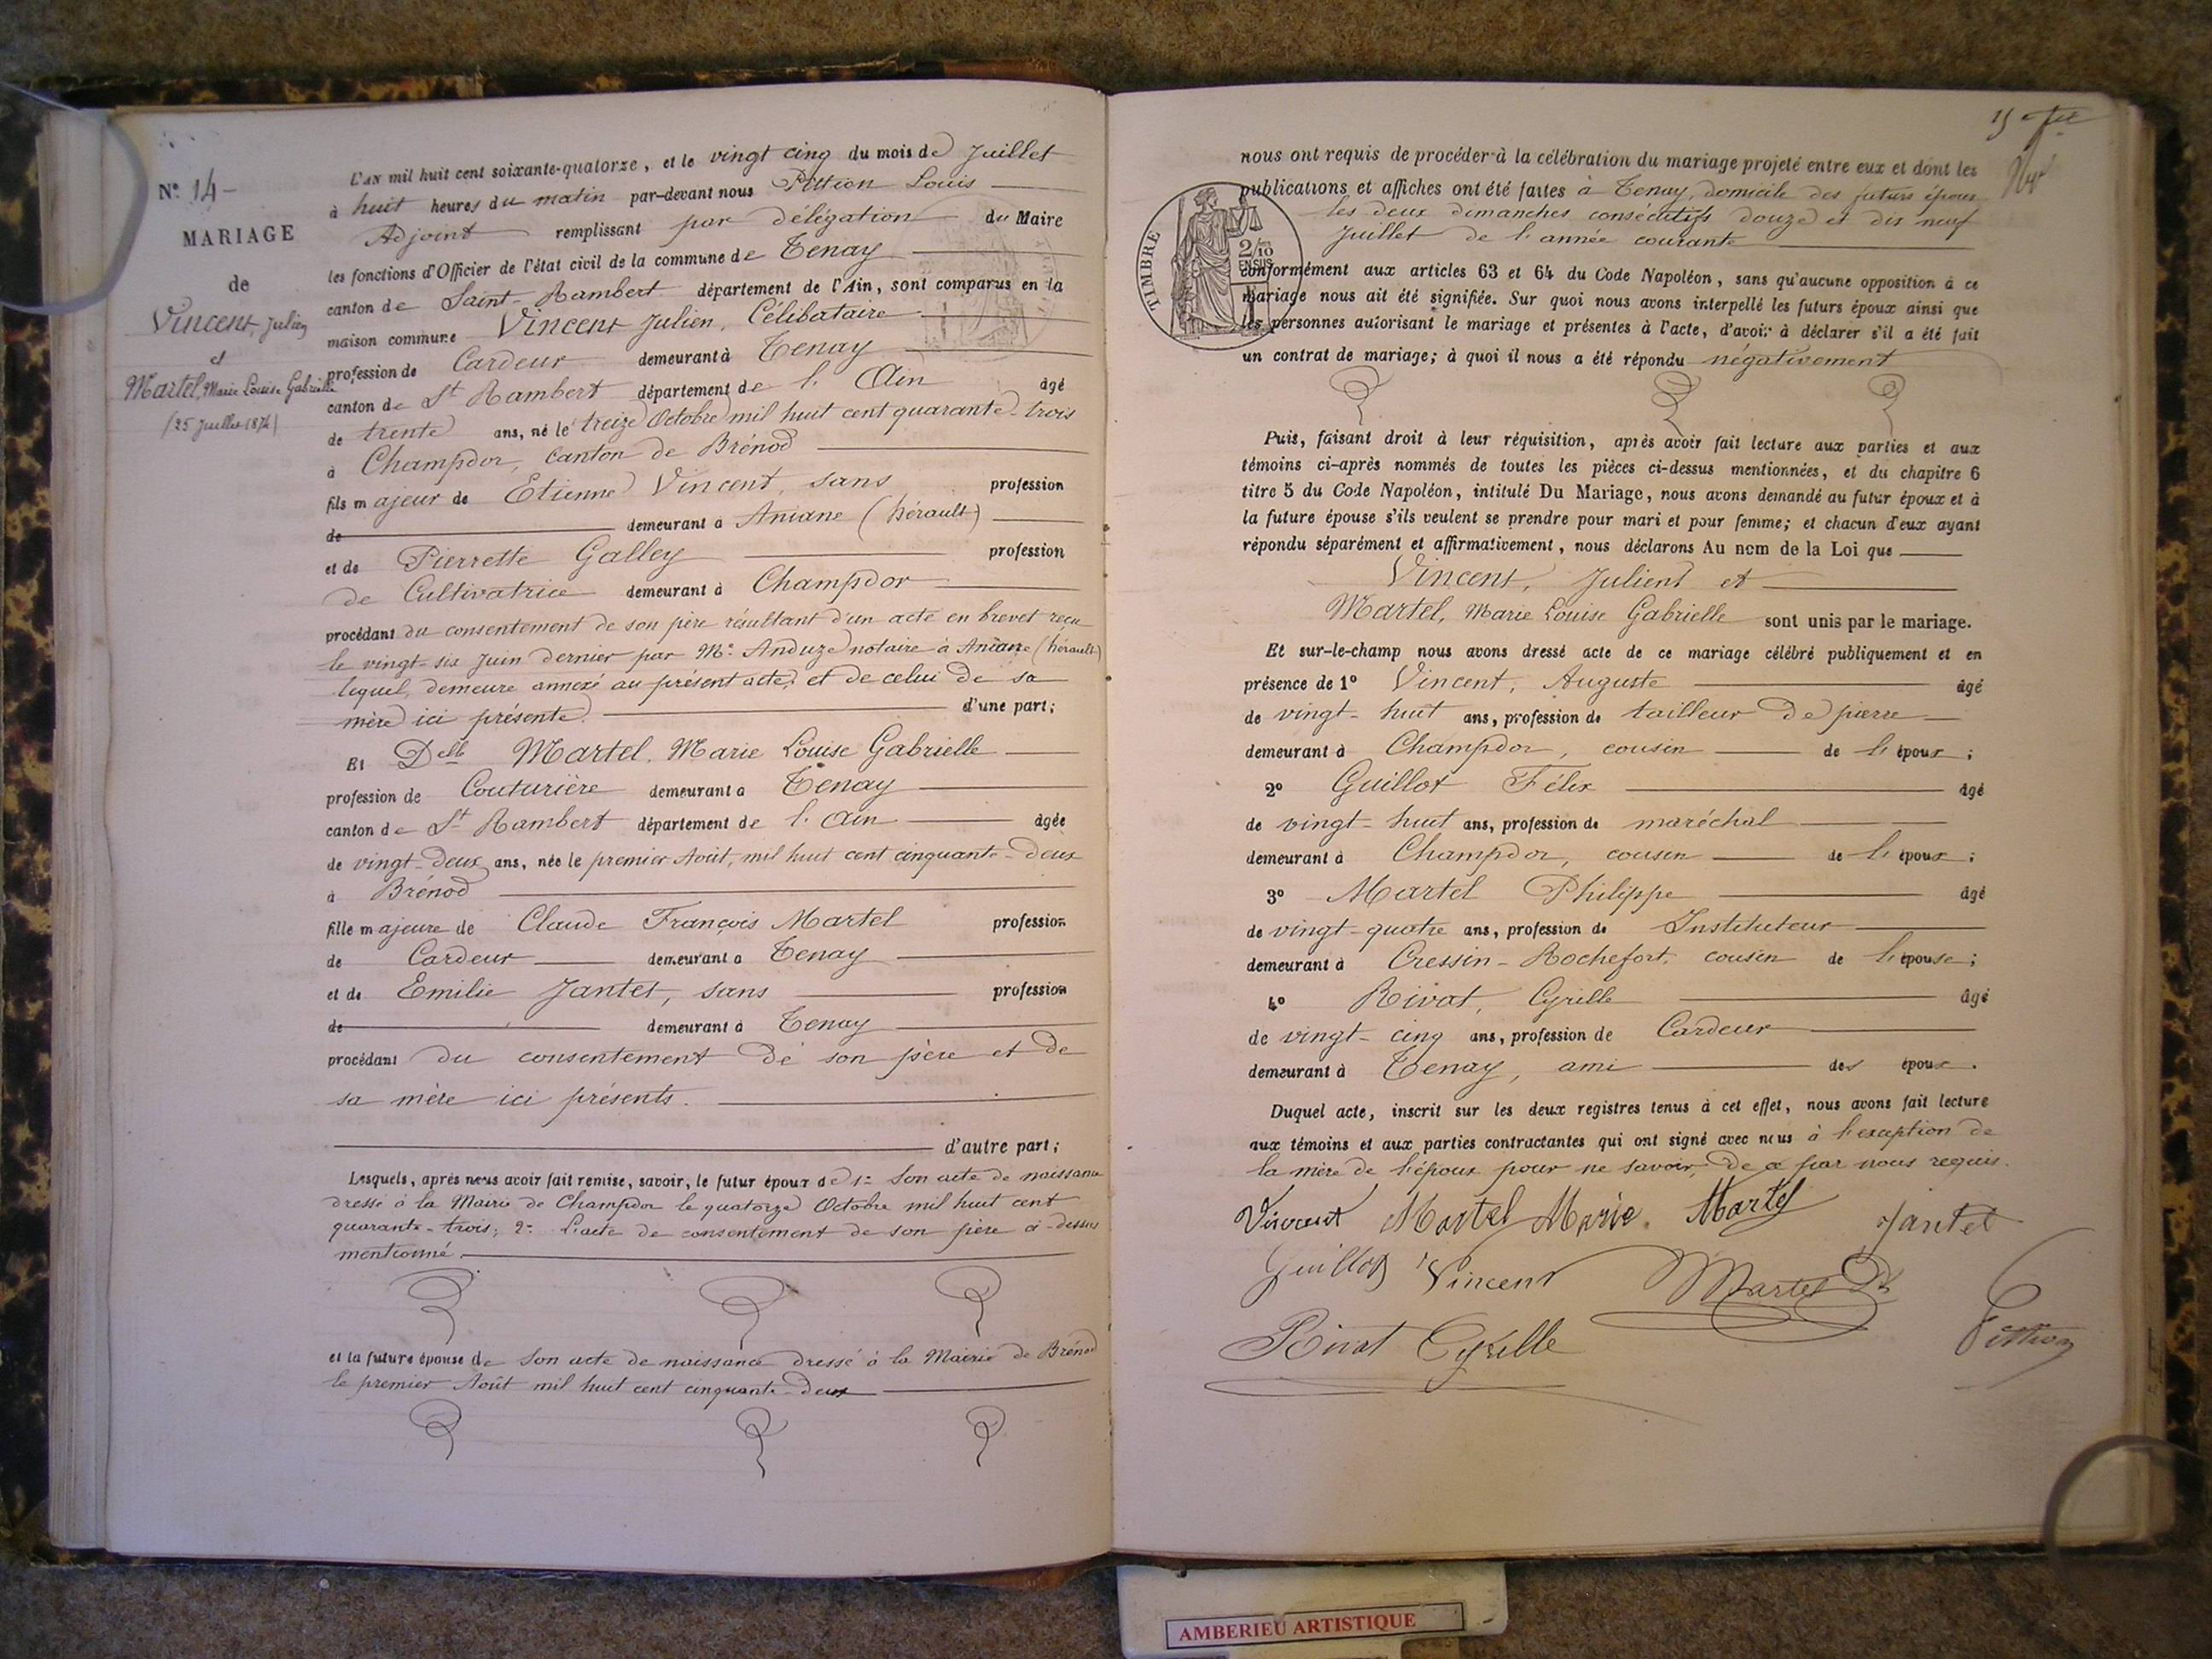 N° 14
MARIAGE
de
Vincent, Julien
et
Martel, Marie Louise Gabrielle
(25 Juillet 1874)
L'AN mil huit cent soixante-quatorze, et le vingt cinq du mois de Juillet
à huit heures du matin par-devant nous Pittion Louis
Adjoint remplissant par délégation du Maire
les fonctions d'Officier de l'état civil de la commune de Tenay
canton de Saint-Rambert département de l'Ain, sont comparus en la
maison commune Vincent Julien, Célibataire
profession de Cardeur demeurant à Tenay
canton de St Rambert département de l'Ain âgé
de trente ans, né le treize Octobre mil huit cent quarante-trois
à Champdor, canton de Brénod
fils majeur de Etienne Vincent, sans profession
de demeurant à Aniane (hérault)
et de Pierrette Galley profession
de Cultivatrice demeurant à Champdor
procédant du consentement de son père résultant d'un acte en brevet reçu
le vingt-six Juin dernier par Me Anduze notaire à Aniane (hérault)
lequel demeure annexé au présent acte, et de celui de sa
mère ici présente. d'une part;
Et Delle Martel, Marie Louise Gabrielle
profession de Couturière demeurant à Tenay
canton de St Rambert département de l'Ain âgée
de vingt-deux ans, née le premier Août, mil huit cent cinquante-deux
à Brénod
fille majeure de Claude François Martel profession
de Cardeur demeurant à Tenay
et de Emilie Jantet, sans profession
de demeurant à Tenay
procédant du consentement de son père et de
sa mère ici présents.
d'autre part;
Lesquels, après nous avoir fait remise, savoir, le futur époux de 1° Son acte de naissance
dressé à la Mairie de Champdor le quatorze Octobre mil huit cent
quarante-trois; 2° L'acte de consentement de son père ci-dessus
mentionné.
et la future épouse de Son acte de naissance dressé à la Mairie de Brénod
le premier Août mil huit cent cinquante-deux
15
nous ont requis de procéder à la célébration du mariage projeté entre eux et dont les
publications et affiches ont été faites à Tenay, domicile des futurs époux
les deux dimanches consécutifs douze et dix neuf
Juillet de l'année courante
TIMBRE
2/10
EN SUS
conformément aux articles 63 et 64 du Code Napoléon, sans qu'aucune opposition à ce
mariage nous ait été signifiée. Sur quoi nous avons interpellé les futurs époux ainsi que
les personnes autorisant le mariage et présentes à l'acte, d'avoir à déclarer s'il a été fait
un contrat de mariage; à quoi il nous a été répondu négativement
Puis, faisant droit à leur réquisition, après avoir fait lecture aux parties et aux
témoins ci-après nommés de toutes les pièces ci-dessus mentionnées, et du chapitre 6
titre 5 du Code Napoléon, intitulé Du Mariage, nous avons demandé au futur époux et à
la future épouse s'ils veulent se prendre pour mari et pour femme; et chacun d'eux ayant
répondu séparément et affirmativement, nous déclarons Au nom de la Loi que
Vincent, Julien et
Martel, Marie Louise Gabrielle sont unis par le mariage.
Et sur-le-champ nous avons dressé acte de ce mariage célébré publiquement et en
présence de 1° Vincent, Auguste âgé
de vingt-huit ans, profession de tailleur de pierre
demeurant à Champdor, cousin de l'époux;
2° Guillot Félix âgé
de vingt-huit ans, profession de maréchal
demeurant à Champdor, cousin de l'époux;
3° Martel Philippe âgé
de vingt-quatre ans, profession de Instituteur
demeurant à Cressin-Rochefort, cousin de l'épouse;
4° Rivat, Cyrille âgé
de vingt-cinq ans, profession de Cardeur
demeurant à Tenay, ami des époux.
Duquel acte, inscrit sur les deux registres tenus à cet effet, nous avons fait lecture
aux témoins et aux parties contractantes qui ont signé avec nous à l'exception de
la mère de l'époux pour ne savoir, de ce par nous requis.
Vincent Martel Marie. Martel Jantet
Guillot Vincent Martel Ph
Rivat Cyrille Pittion
AMBERIEU ARTISTIQUE